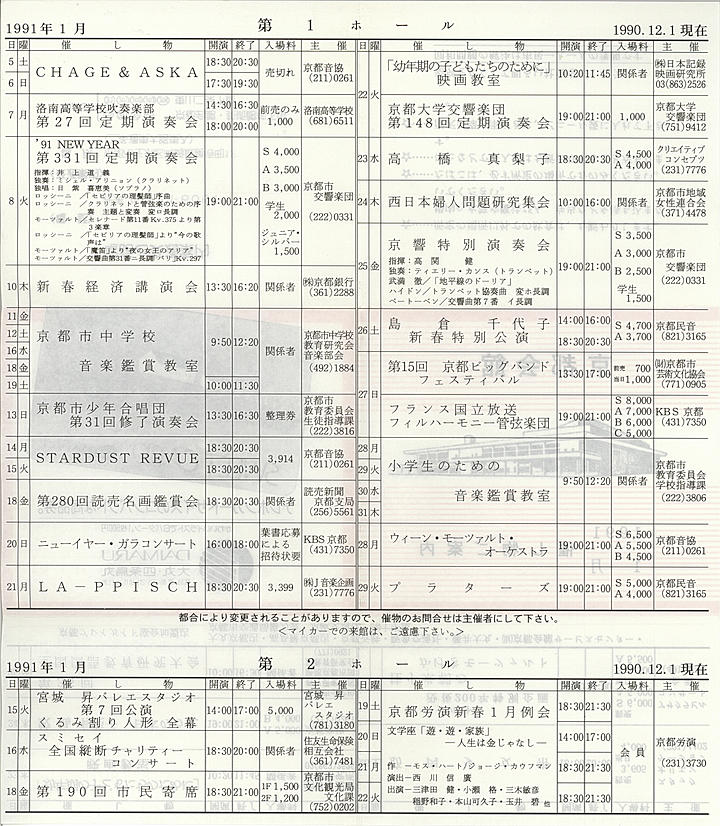 1991年1月
第1ホール
1990.12.1現在
日 曜 催し物 開演 終了 入場料 主催
5 土
6 日
CHAGE & ASKA
18:30 20:30
17:30 19:30
売切れ
京都音協
(211)0261
7 月
洛南高等学校吹奏楽部
第27回定期演奏会
14:30 16:30
18:00 20:00
前売のみ
1,000
洛南高等学校
(681)6511
8 火
'91 NEW YEAR
第331回定期演奏会
指揮:井上道義
独奏:ミシェル・アリニョン(クラリネット)
独唱:日紫喜恵美(ソプラノ)
ロッシーニ /「セビリアの理髪師」序曲
ロッシーニ /クラリネットと管弦楽のための序奏 主題と変奏 変ロ長調
モーツァルト/セレナード第11番Kv.375より第3楽章
ロッシーニ /「セビリアの理髪師」より"今の歌声は"
モーツァルト/「魔笛」より"夜の女王のアリア"
モーツァルト/交響曲第31番ニ長調「パリ」Kv.297
19:00 21:00
S 4,000
A 3,500
B 3,000
学生
2,000
ジュニア・
シルバー
1,500
京都市
交響楽団
(222)0331
10 木
新春経済講演会
13:30 16:20
関係者
㈱京都銀行
(361)2288
11 金
12 土
16 水
18 金
19 土
京都市中学校
音楽鑑賞教室
9:50 12:20
10:00 11:30
関係者
京都市中学校
教育研究会
音楽部会
(492)1884
13 日
京都市少年合唱団
第31回修了演奏会
13:30 16:30
整理券
京都市
教育委員会
生徒指導課
(222)3816
14 月
15 火
STARDUST REVUE
18:30 20:30
18:30 20:30
3,914
京都音協
(211)0261
18 金
第280回読売名画鑑賞会
18:30 20:30
関係者
読売新聞
京都支局
(256)5561
20 日
ニューイヤー・ガラコンサート
16:00 18:00
葉書応募
による
招待状要
KBS京都
(431)7350
21 月
LA-PPISCH
18:30 20:30
3,399
㈱J音楽企画
(231)7776
日 曜 催し物 開演 終了 入場料 主催
22 火
「幼年期の子どもたちのために」
映画教室
10:20 11:45
関係者
㈱日本記録
映画研究所
03(863)2526
京都大学交響楽団
第148回定期演奏会
19:00 21:00
1,000
京都大学
交響楽団
(751)9412
23 水
高橋真梨子
18:30 20:30
S 4,500
A 4,000
クリエイティブ
コンセプツ
(231)7776
24 木
西日本婦人問題研究集会
10:00 16:00
関係者
京都市地域
女性連合会
(371)4478
25 金
京響特別演奏会
指揮:高関健
独奏:ティエリー・カンス(トランペット)
武満徹/「地平線のドーリア」
ハイドン/トランペット協奏曲 変ホ長調
ベートーベン/交響曲第7番 イ長調
19:00 21:00
S 3,500
A 3,000
B 2,500
学生
1,500
京都市
交響楽団
(222)0331
26 土
島倉千代子
新春特別公演
14:00 16:00
18:30 20:30
S 4,700
A 3,700
京都民音
(821)3165
27 日
第15回 京都ビッグバンド
フェスティバル
13:30 17:00
前売 700
当日 1,000
㈶京都市
芸術文化協会
(771)0905
フランス国立放送
フィルハーモニー管弦楽団
19:00 21:00
S 8,000
A 7,000
B 6,000
C 5,000
KBS京都
(431)7350
28 月
29 火
30 水
31 木
小学生のための
音楽鑑賞教室
9:50 12:20
関係者
京都市
教育委員会
学校指導課
(222)3806
28 月
ウィーン・モーツァルト・
オーケストラ
19:00 21:00
S 6,500
A 5,500
B 4,500
京都音協
(211)0261
29 火
プラターズ
19:00 21:00
S 5,000
A 4,000
京都民音
(821)3165
都合により変更されることがありますので、催物のお問合せは主催者にして下さい。
<マイカーでの来館は、ご遠慮下さい。>
1991年1月
第2ホール
1990.12.1現在
日 曜 催し物 開演 終了 入場料 主催
15 火
宮城 昇バレエスタジオ
第7回公演
くるみ割り人形 全幕
14:00 17:00
5,000
宮城 昇
バレエ
スタジオ
(781)3180
16 木
スミセイ
全国縦断チャリティー
コンサート
18:30 20:00
関係者
住友生命保険
相互会社
(361)7481
18 金
第190回市民寄席
18:30 21:00
1F 1,500
2F 1,200
京都市
文化観光局
文化課
(752)0202
日 曜 催し物 開演 終了 入場料 主催
19 土
20 日
21 月
22 火
京都労演新春1月例会
文学座「遊・遊・家族」
―人生は金じゃなし―
作 ーモス・ハート/ジョージ・カウフマン
演出ー西川信廣
出演ー三津田健・小瀬格・三木敏彦
稲野和子・本山可久子・玉井碧 他
18:30 21:30
14:00 17:00
18:30 21:30
18:30 21:30
会員
京都労演
(231)3730